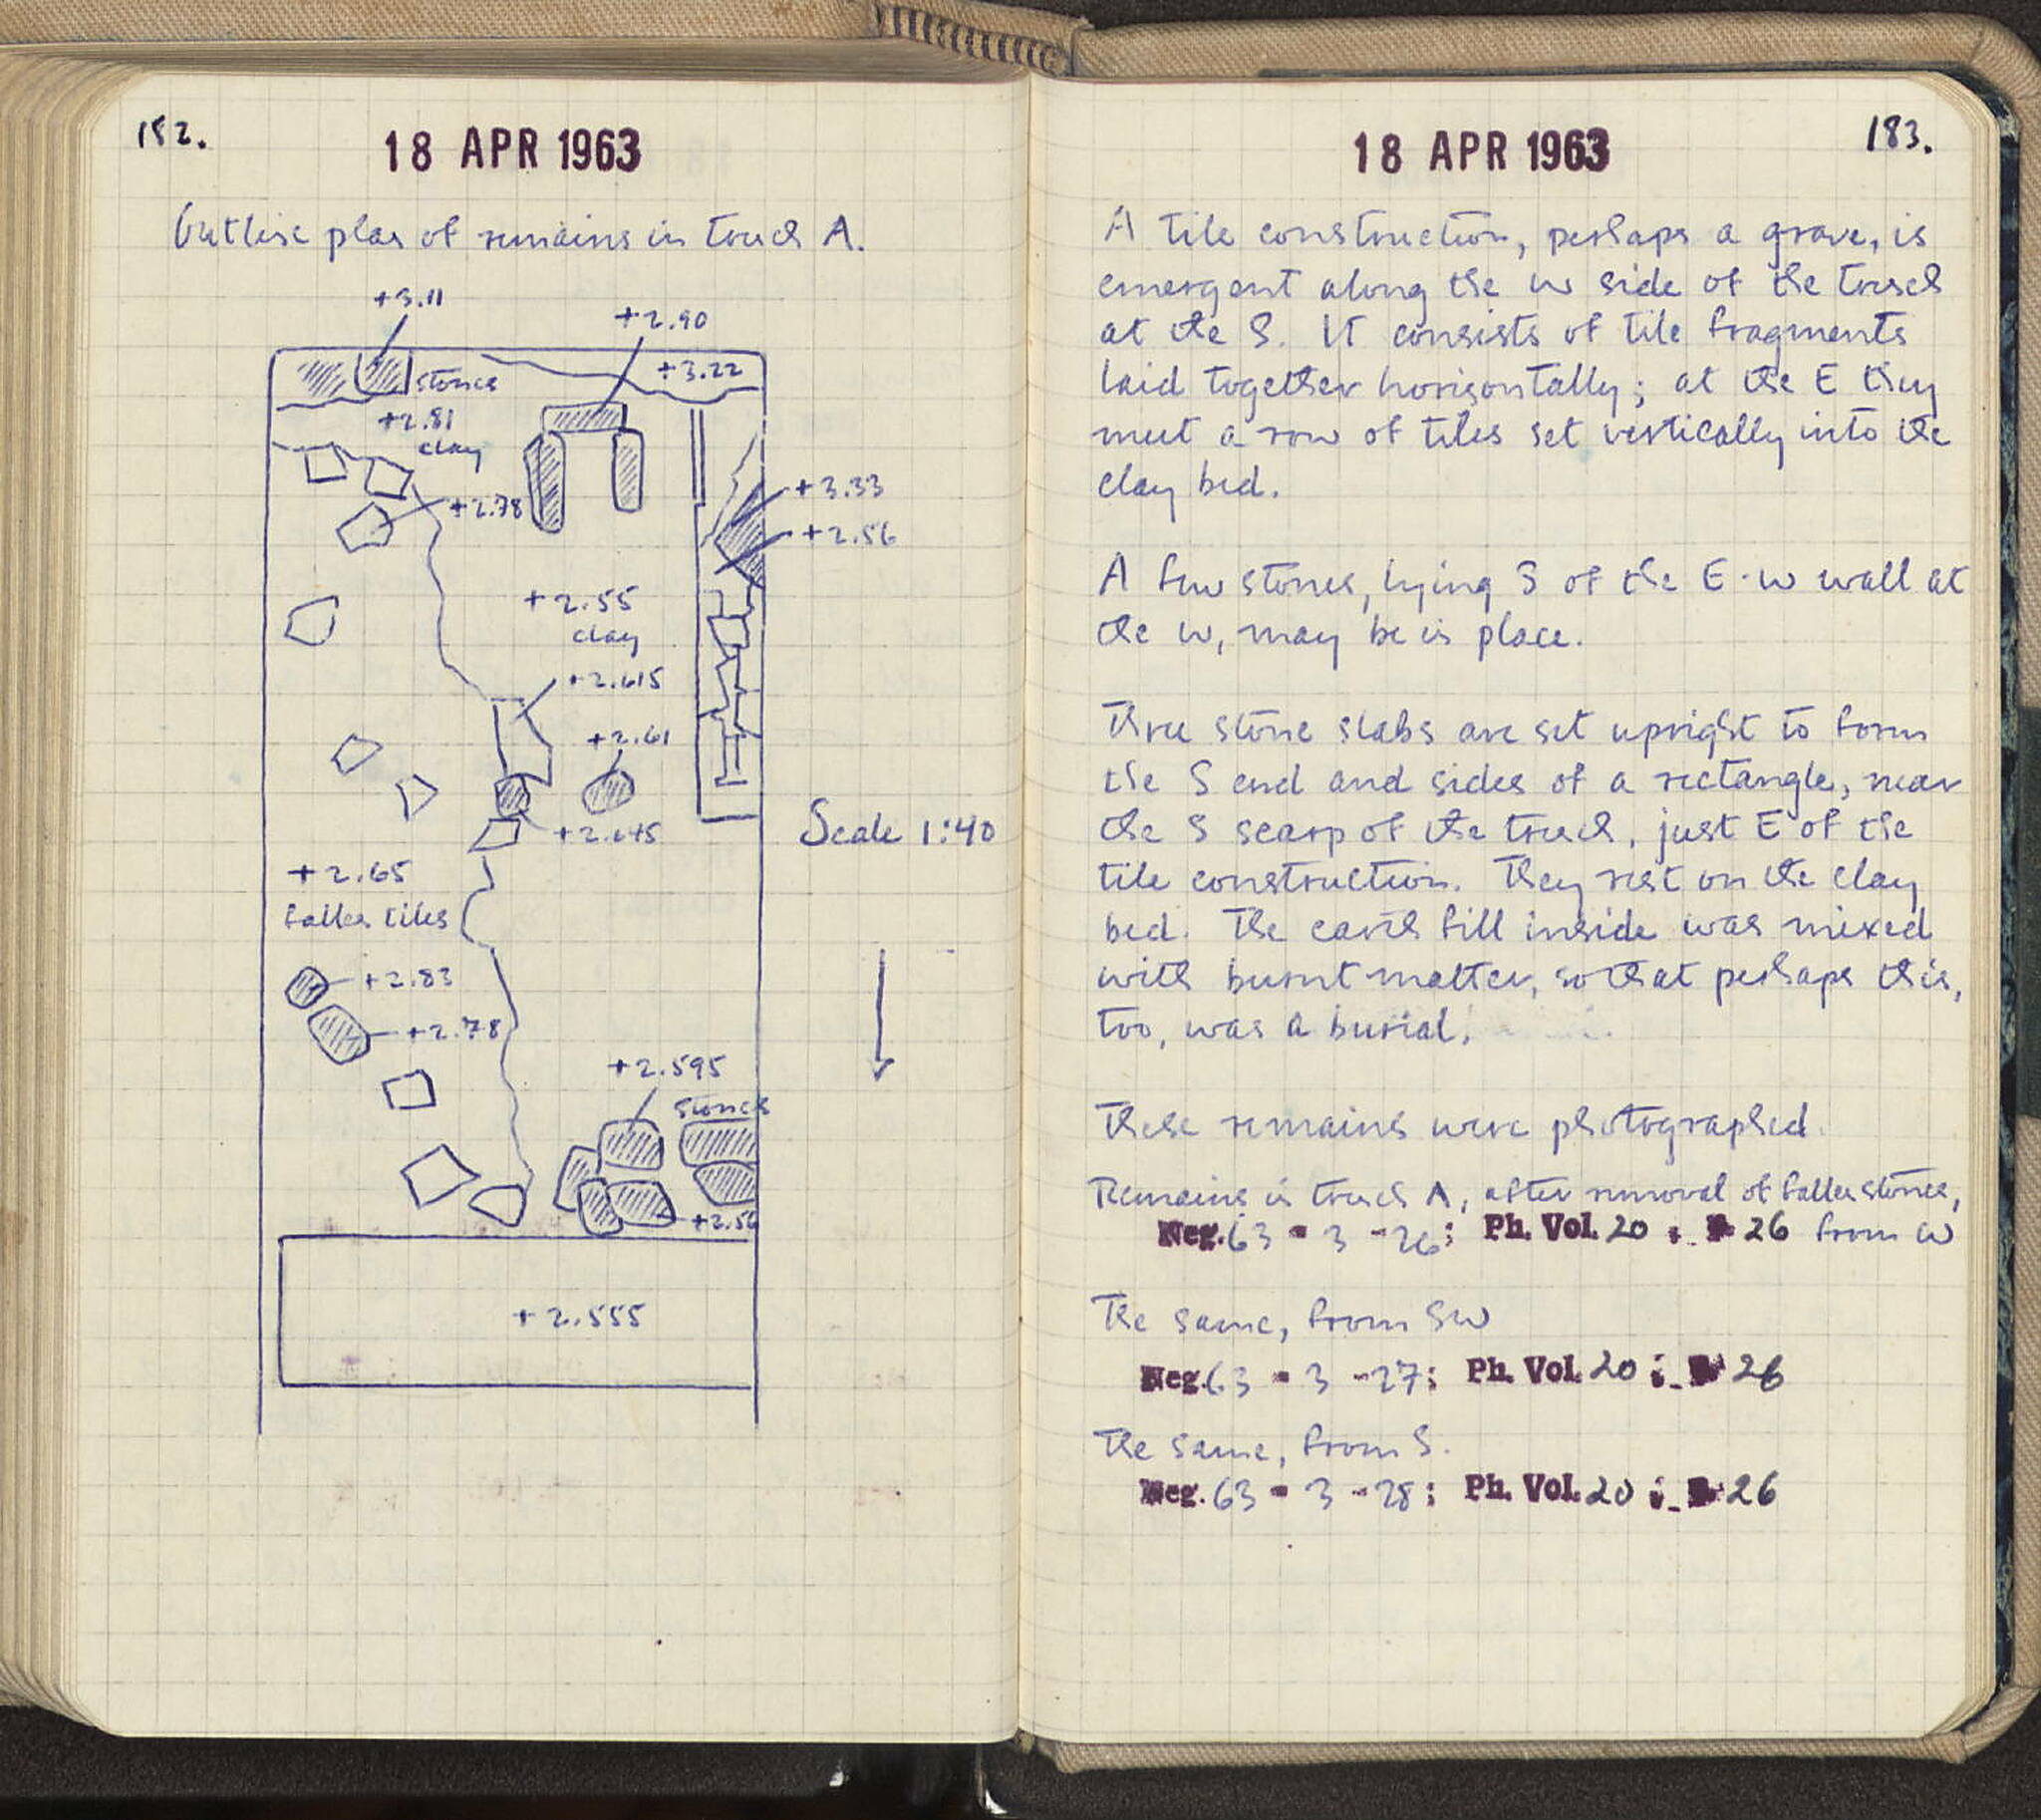 182.
18 APR 1963
Outline plan of remains in trench A.
+3.11
+2.90
stones
+3.22
+2.81
clay
+2.78
+3.33
+2.56
+2.55
clay
+2.615
+2.61
+2.645
Scale 1:40
+2.65
fallen tiles
+2.83
+2.78
+2.595
stones
+2.56
+2.555
18 APR 1963
183.
A tile construction, perhaps a grave, is
emergent along the W side of the trench
at the S. It consists of tile fragments
laid together horizontally; at the E they
meet a row of tiles set vertically into the
clay bed.
A few stones, lying S of the E-W wall at
the W, may be in place.
Three stone slabs are set upright to form
the S end and sides of a rectangle, near
the S scarp of the trench, just E of the
tile construction. They rest on the clay
bed. The earth fill inside was mixed
with burnt matter, so that perhaps this,
too, was a burial.
These remains were photographed.
Remains in trench A, after removal of fallen stones,
Neg. 63 - 3 - 26; Ph. Vol. 20 : 26 from W
The same, from SW
Neg. 63 - 3 - 27; Ph. Vol. 20 : 26
The same, from S.
Neg. 63 - 3 - 28; Ph. Vol. 20 : 26